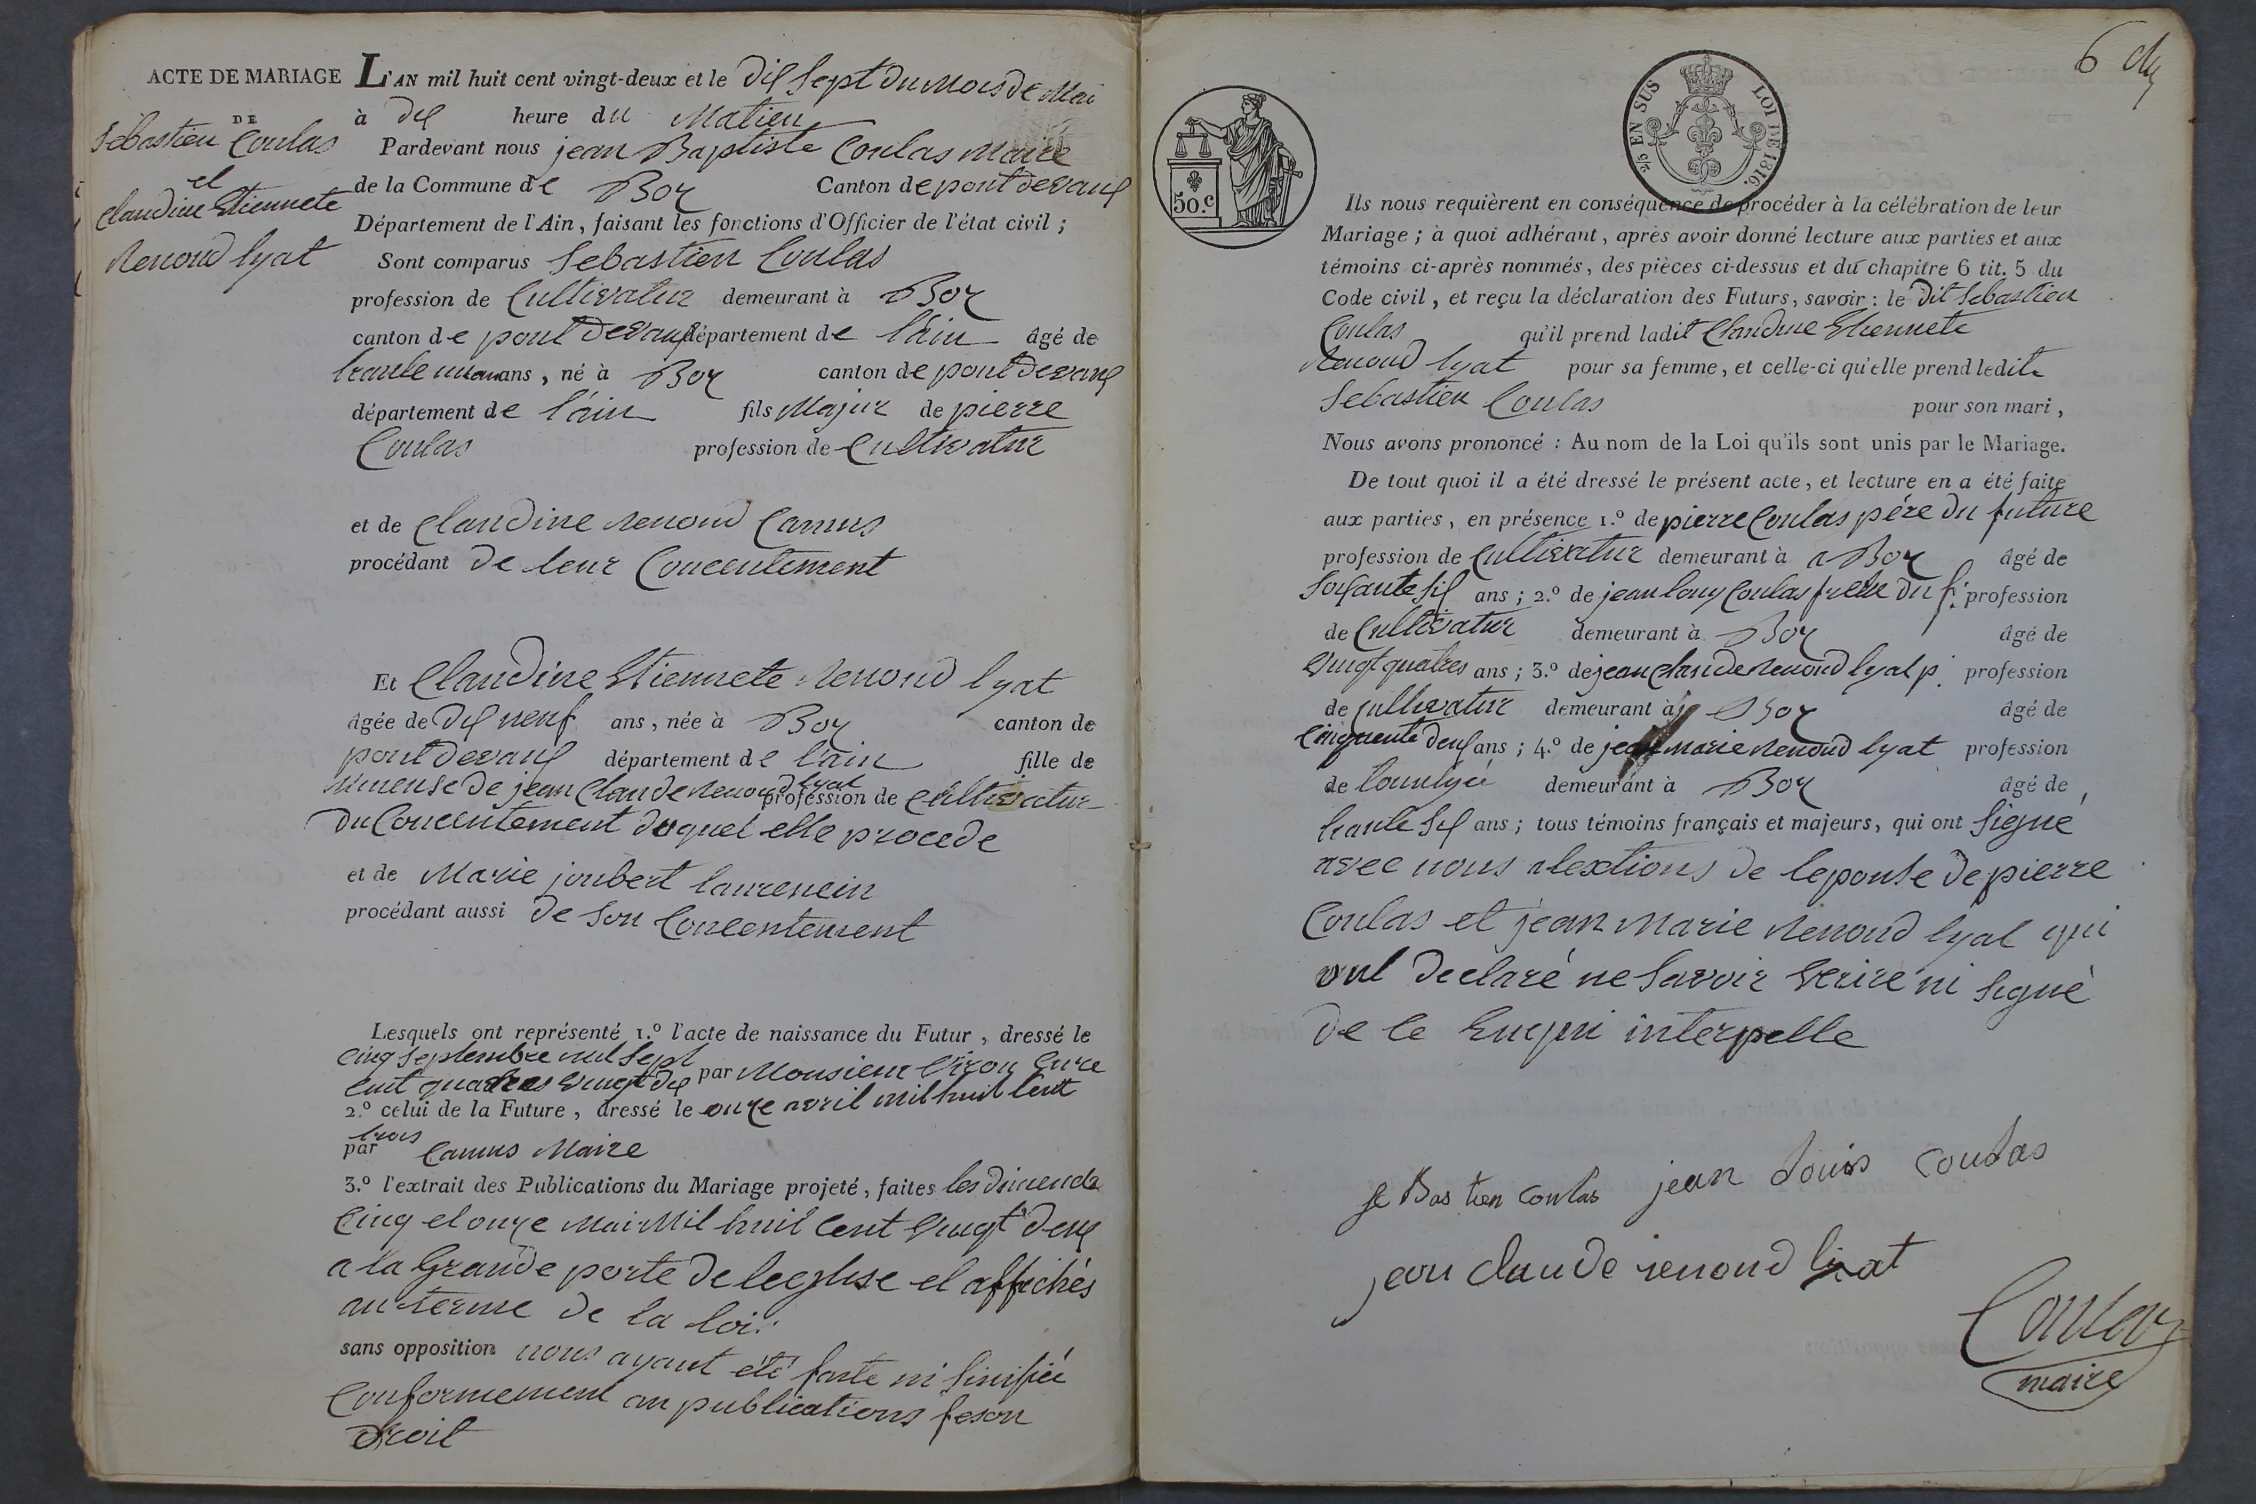 ACTE DE MARIAGE
DE
Sebastien Coulas
et
Claudine Etiennete
Renoud lyat
L'AN mil huit cent vingt-deux et le dix Sept du Mois de Mai
à dix heure du Matien
Pardevant nous jean Baptiste Coulas Maire
de la Commune de Boz Canton de pont devaux
Département de l'Ain, faisant les fonctions d'Officier de l'état civil;
Sont comparus Sebastien Coulas
profession de Cultivatur demeurant à Boz
canton de pont devaux département de l'ain âgé de
trante un ans, né à Boz canton de pont devaux
département de l'ain fils Majur de pierre
Coulas profession de Cultivatur
et de Claudine renoud Camus
procédant de leur Concentement
Et Claudine Etiennete Renoud lyat
âgée de dix neuf ans, née à Boz canton de
pont devaux département de l'ain fille de
mineuse de jean Claude renoud lyat profession de Cultivatur
du Concentement duquel elle procede
et de Marie joubert laurencin
procédant aussi de son Concentement
Lesquels ont représenté 1.º l'acte de naissance du Futur, dressé le
Cinq Septembre mil Sept
Cent quatres vingt dix par Monsieur Curé
2.º celui de la Future, dressé le onze avril mil huit Cent
trois
par Camus Maire
3.º l'extrait des Publications du Mariage projeté, faites les dimende
Cinq et onze Mai Mil huit Cent vingt deux
a la Grande porte de leeglise et affichés
au terme de la loi.
sans opposition nous ayant été faite ni sinifiée
Conformement au publications feson
droit
6
50.c
2/5 EN SUS LOI DE 1816.
Ils nous requièrent en conséquence de procéder à la célébration de leur
Mariage; à quoi adhérant, après avoir donné lecture aux parties et aux
témoins ci-après nommés, des pièces ci-dessus et du chapitre 6 tit. 5 du
Code civil, et reçu la déclaration des Futurs, savoir: le dit Sebastien
Coulas qu'il prend ladit Claudine Etiennete
Renoud lyat pour sa femme, et celle-ci qu'elle prend ledite
Sebastien Coulas pour son mari,
Nous avons prononcé: Au nom de la Loi qu'ils sont unis par le Mariage.
De tout quoi il a été dressé le présent acte, et lecture en a été faite
aux parties, en présence 1.º de pierre Coulas pére du future
profession de Cultivatur demeurant à a Boz âgé de
Soixante Six ans; 2.º de jean louy Coulas frere du f. profession
de Cultivatur demeurant à Boz âgé de
vingt quatres ans; 3.º de jean Claude renoud lyat p. profession
de Cultivatur demeurant à Boz âgé de
Cinquente deux ans; 4.º de jean Marie renoud lyat profession
de demeurant à Boz âgé de
trante Six ans; tous témoins français et majeurs, qui ont Signé
avec nous alextions de lepouse de pierre
Coulas et jean Marie Renoud lyat qui
ont declaré ne Savoir Ecrire ni Signé
de ce Enquni interpelle
se Bas tien coulas jean Louis coulas
jean claude renoud liat
Coulas
maire